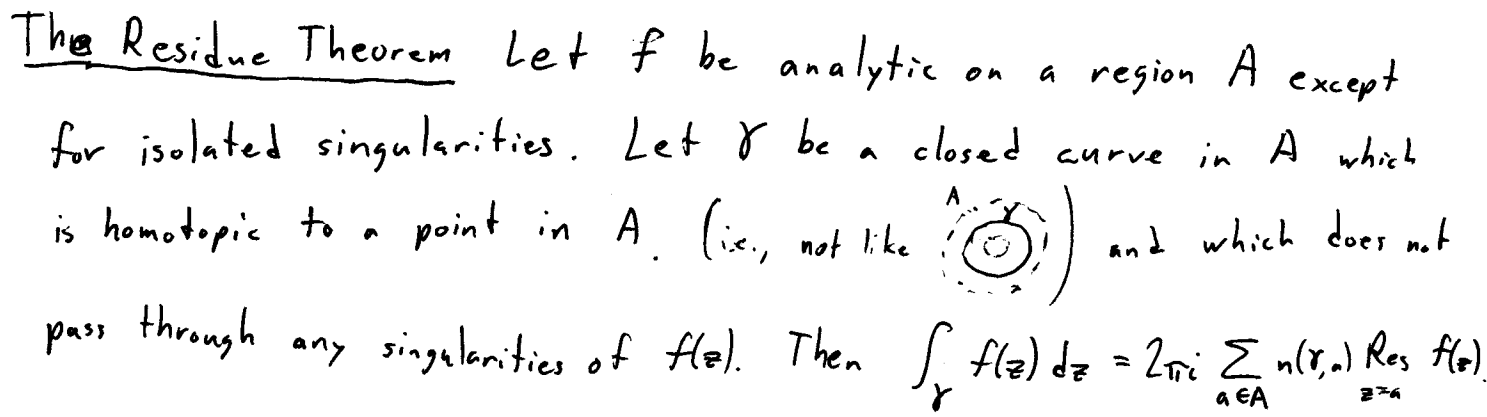 The Residue Theorem Let f be analytic on a region A except
for isolated singularities. Let γ be a closed curve in A which
is homotopic to a point in A. (i.e., not like A γ) and which does not
pass through any singularities of f(z). Then ∫_γ f(z) dz = 2πi ∑_{a∈A} n(γ,a) Res_{z=a} f(z).